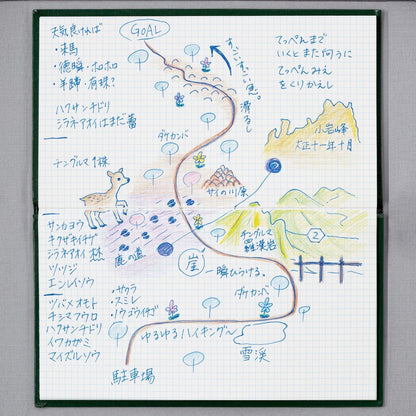 天気良ければ
・来馬
・徳舜・ホロホロ
・羊蹄・有珠?
ハクサンチドリ
シラネアオイはまだ蕾
チングルマ1株
サンカヨウ
キクザキイチゲ
シラネアオイ 1株
ツツジ
エンレイソウ
ツバメオモト
チシマフウロ
ハクサンチドリ
イワカガミ
マイヅルソウ
・サクラ
・スミレ
・ノウゴウイチゴ
GOAL
すごいすごい急。
滑るし
てっぺんまで
いくとまた向うに
てっぺんみえ
をくりかえし
小岩山峰
大正十一年十月
ダケカンバ
サイの川原
鹿の道
チングルマ
羅漢岩
2
崖
一瞬ひらける。
ダケカンバ
ゆるゆるハイキング〜
雪渓
駐車場